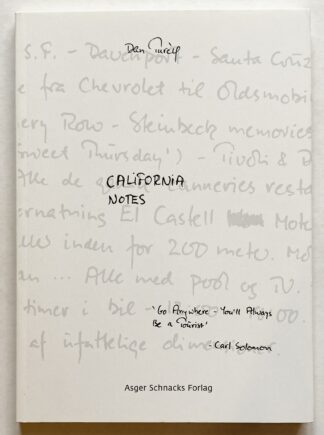 Dan Turèll
S.F. - Davenport - Santa Cruz
e fra Chevrolet til Oldsmobi
ery Row - Steinbeck memories
weet Thursday') - Tivoli & B
CALIFORNIA
Alle de canneries resta
NOTES
ernatning El Castell Mote
inden for 200 mete. Mo
an ... Alle med pool og TV.
'Go Anywhere - You'll Always
timer i bil 00.
Be a Tourist'
af ufattelige dimensioner
- Carl Solomon
Asger Schnacks Forlag